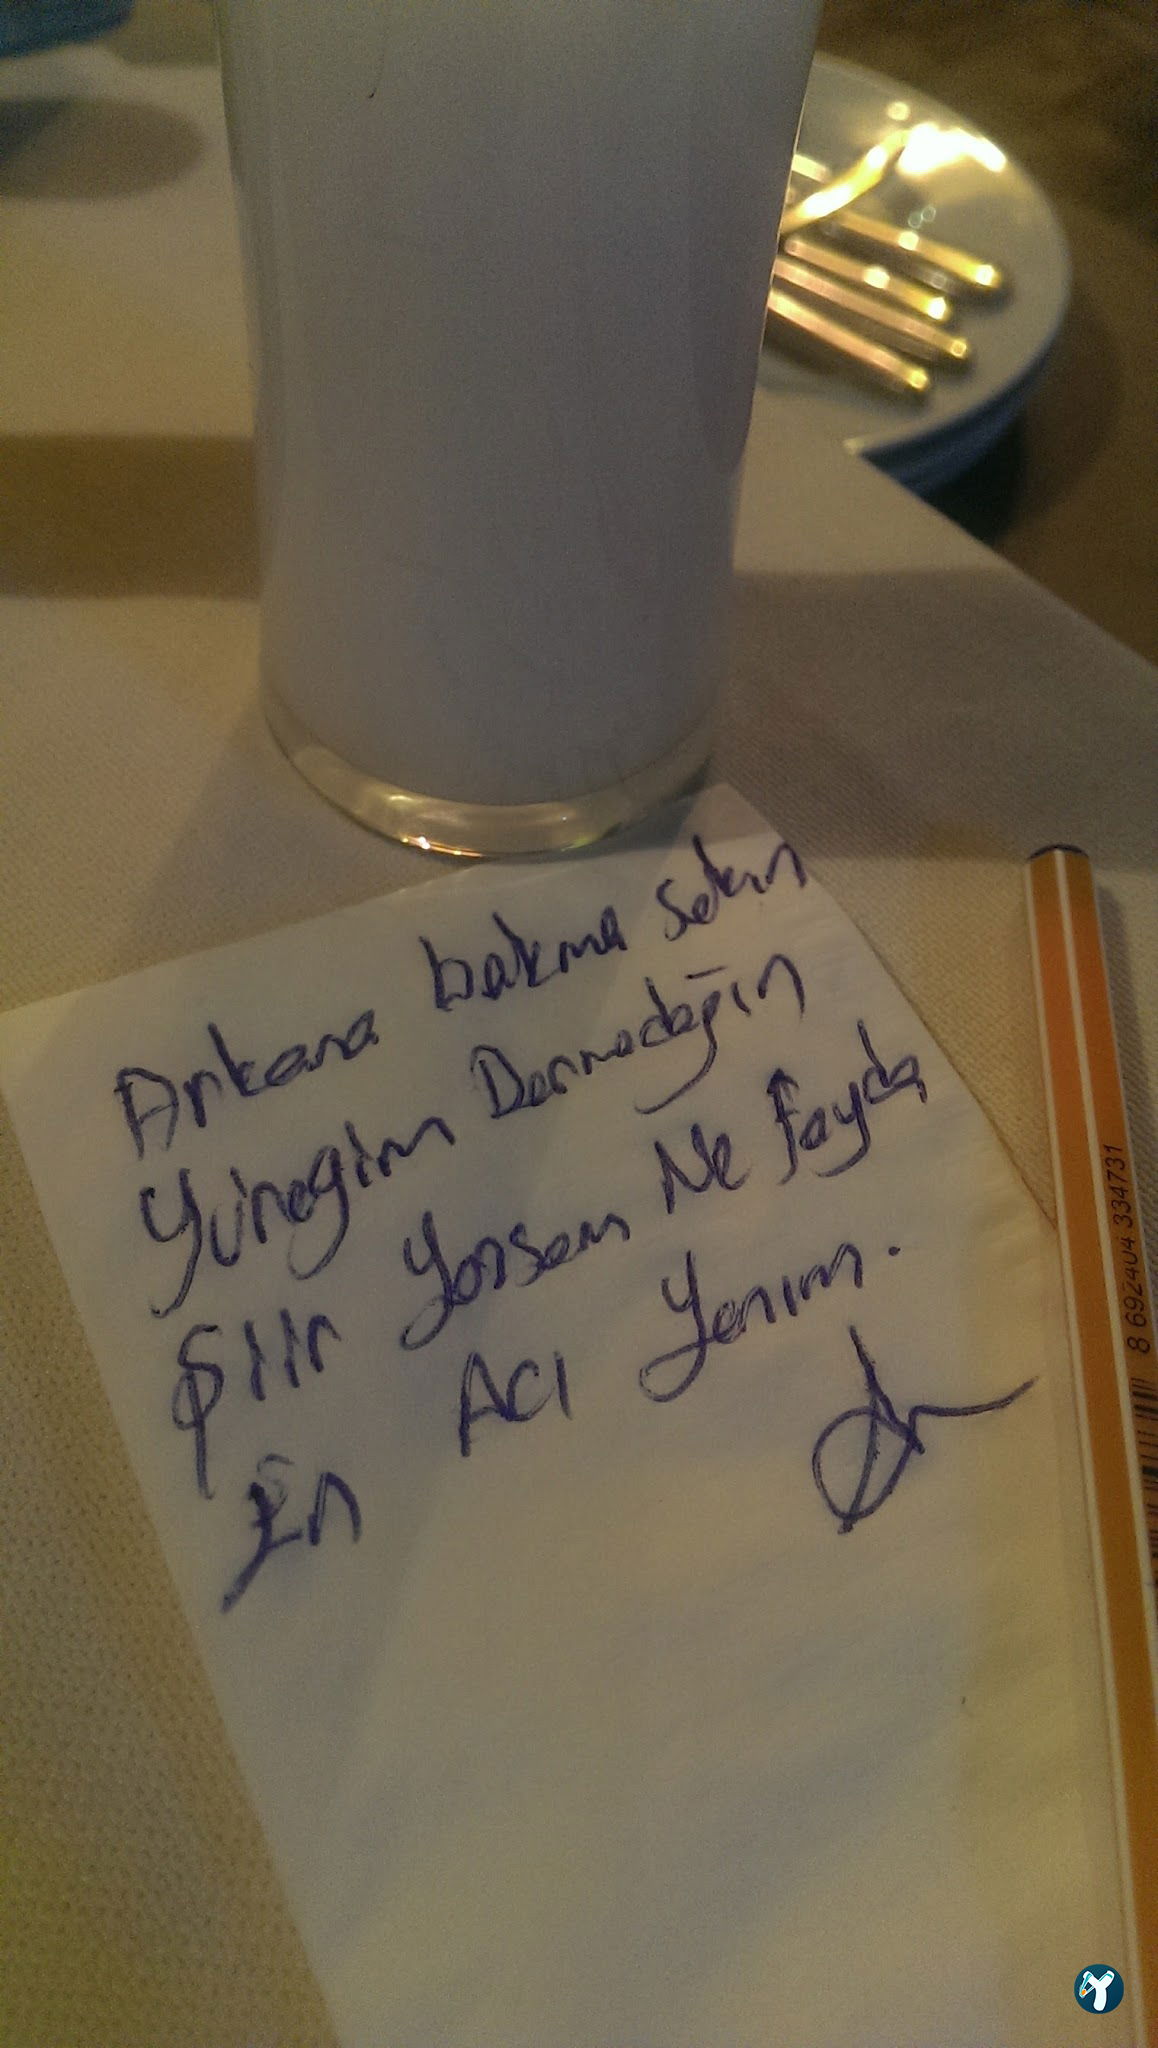 Arkana bakma sakın
Yüreğim Darmadağın
Şiir Yazsam Ne fayda
En Acı Yanım.
8 692404 334731